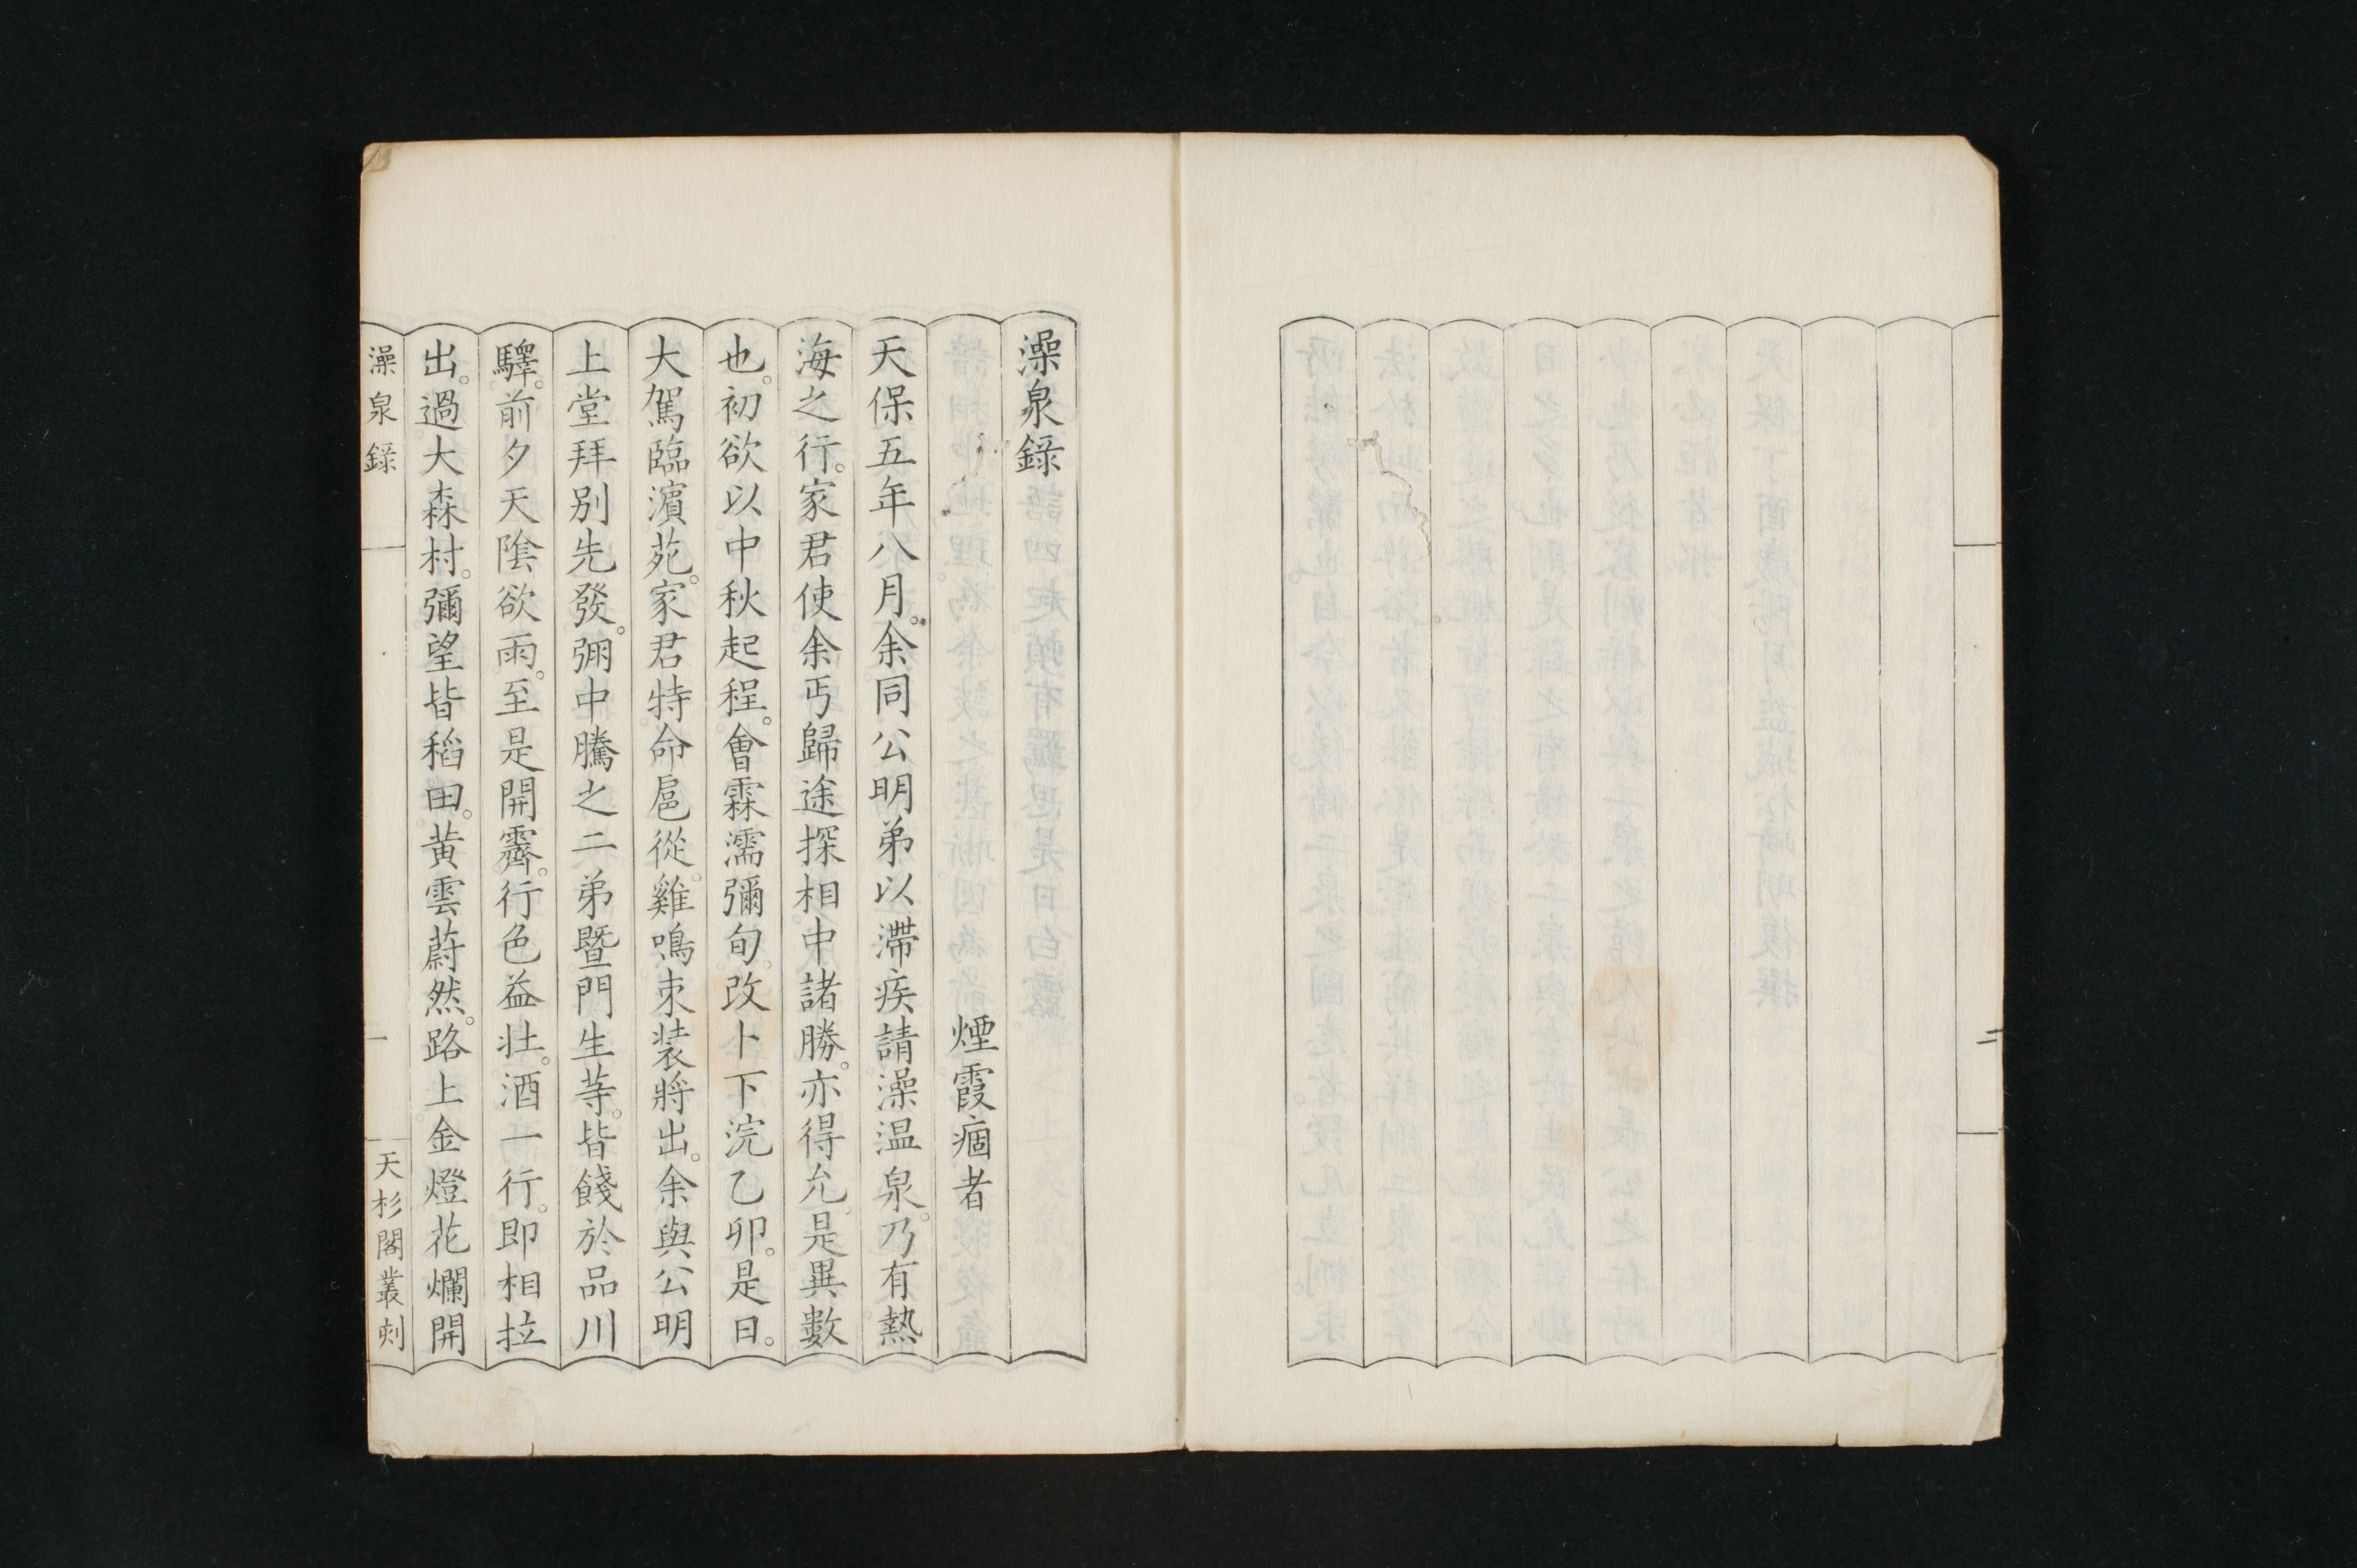 二
澡泉錄
煙霞痼者
天保五年八月。余同公明弟以滯疾請澡温泉。乃有熱
海之行。家君使余丐歸途探相中諸勝。亦得允。是異數
也。初欲以中秋起程。會霖濡彌旬。改卜下浣乙卯。是日。
大駕臨濱苑。家君特命扈從。雞鳴束装將出。余與公明
上堂拜別先發。弸中騰之二弟曁門生等。皆餞於品川
驛。前夕天陰欲雨。至是開霽。行色益壯。酒一行。即相拉
出。過大森村。彌望皆稻田。黃雲蔚然。路上金燈花爛開
澡泉錄
一
天杉閣叢刻